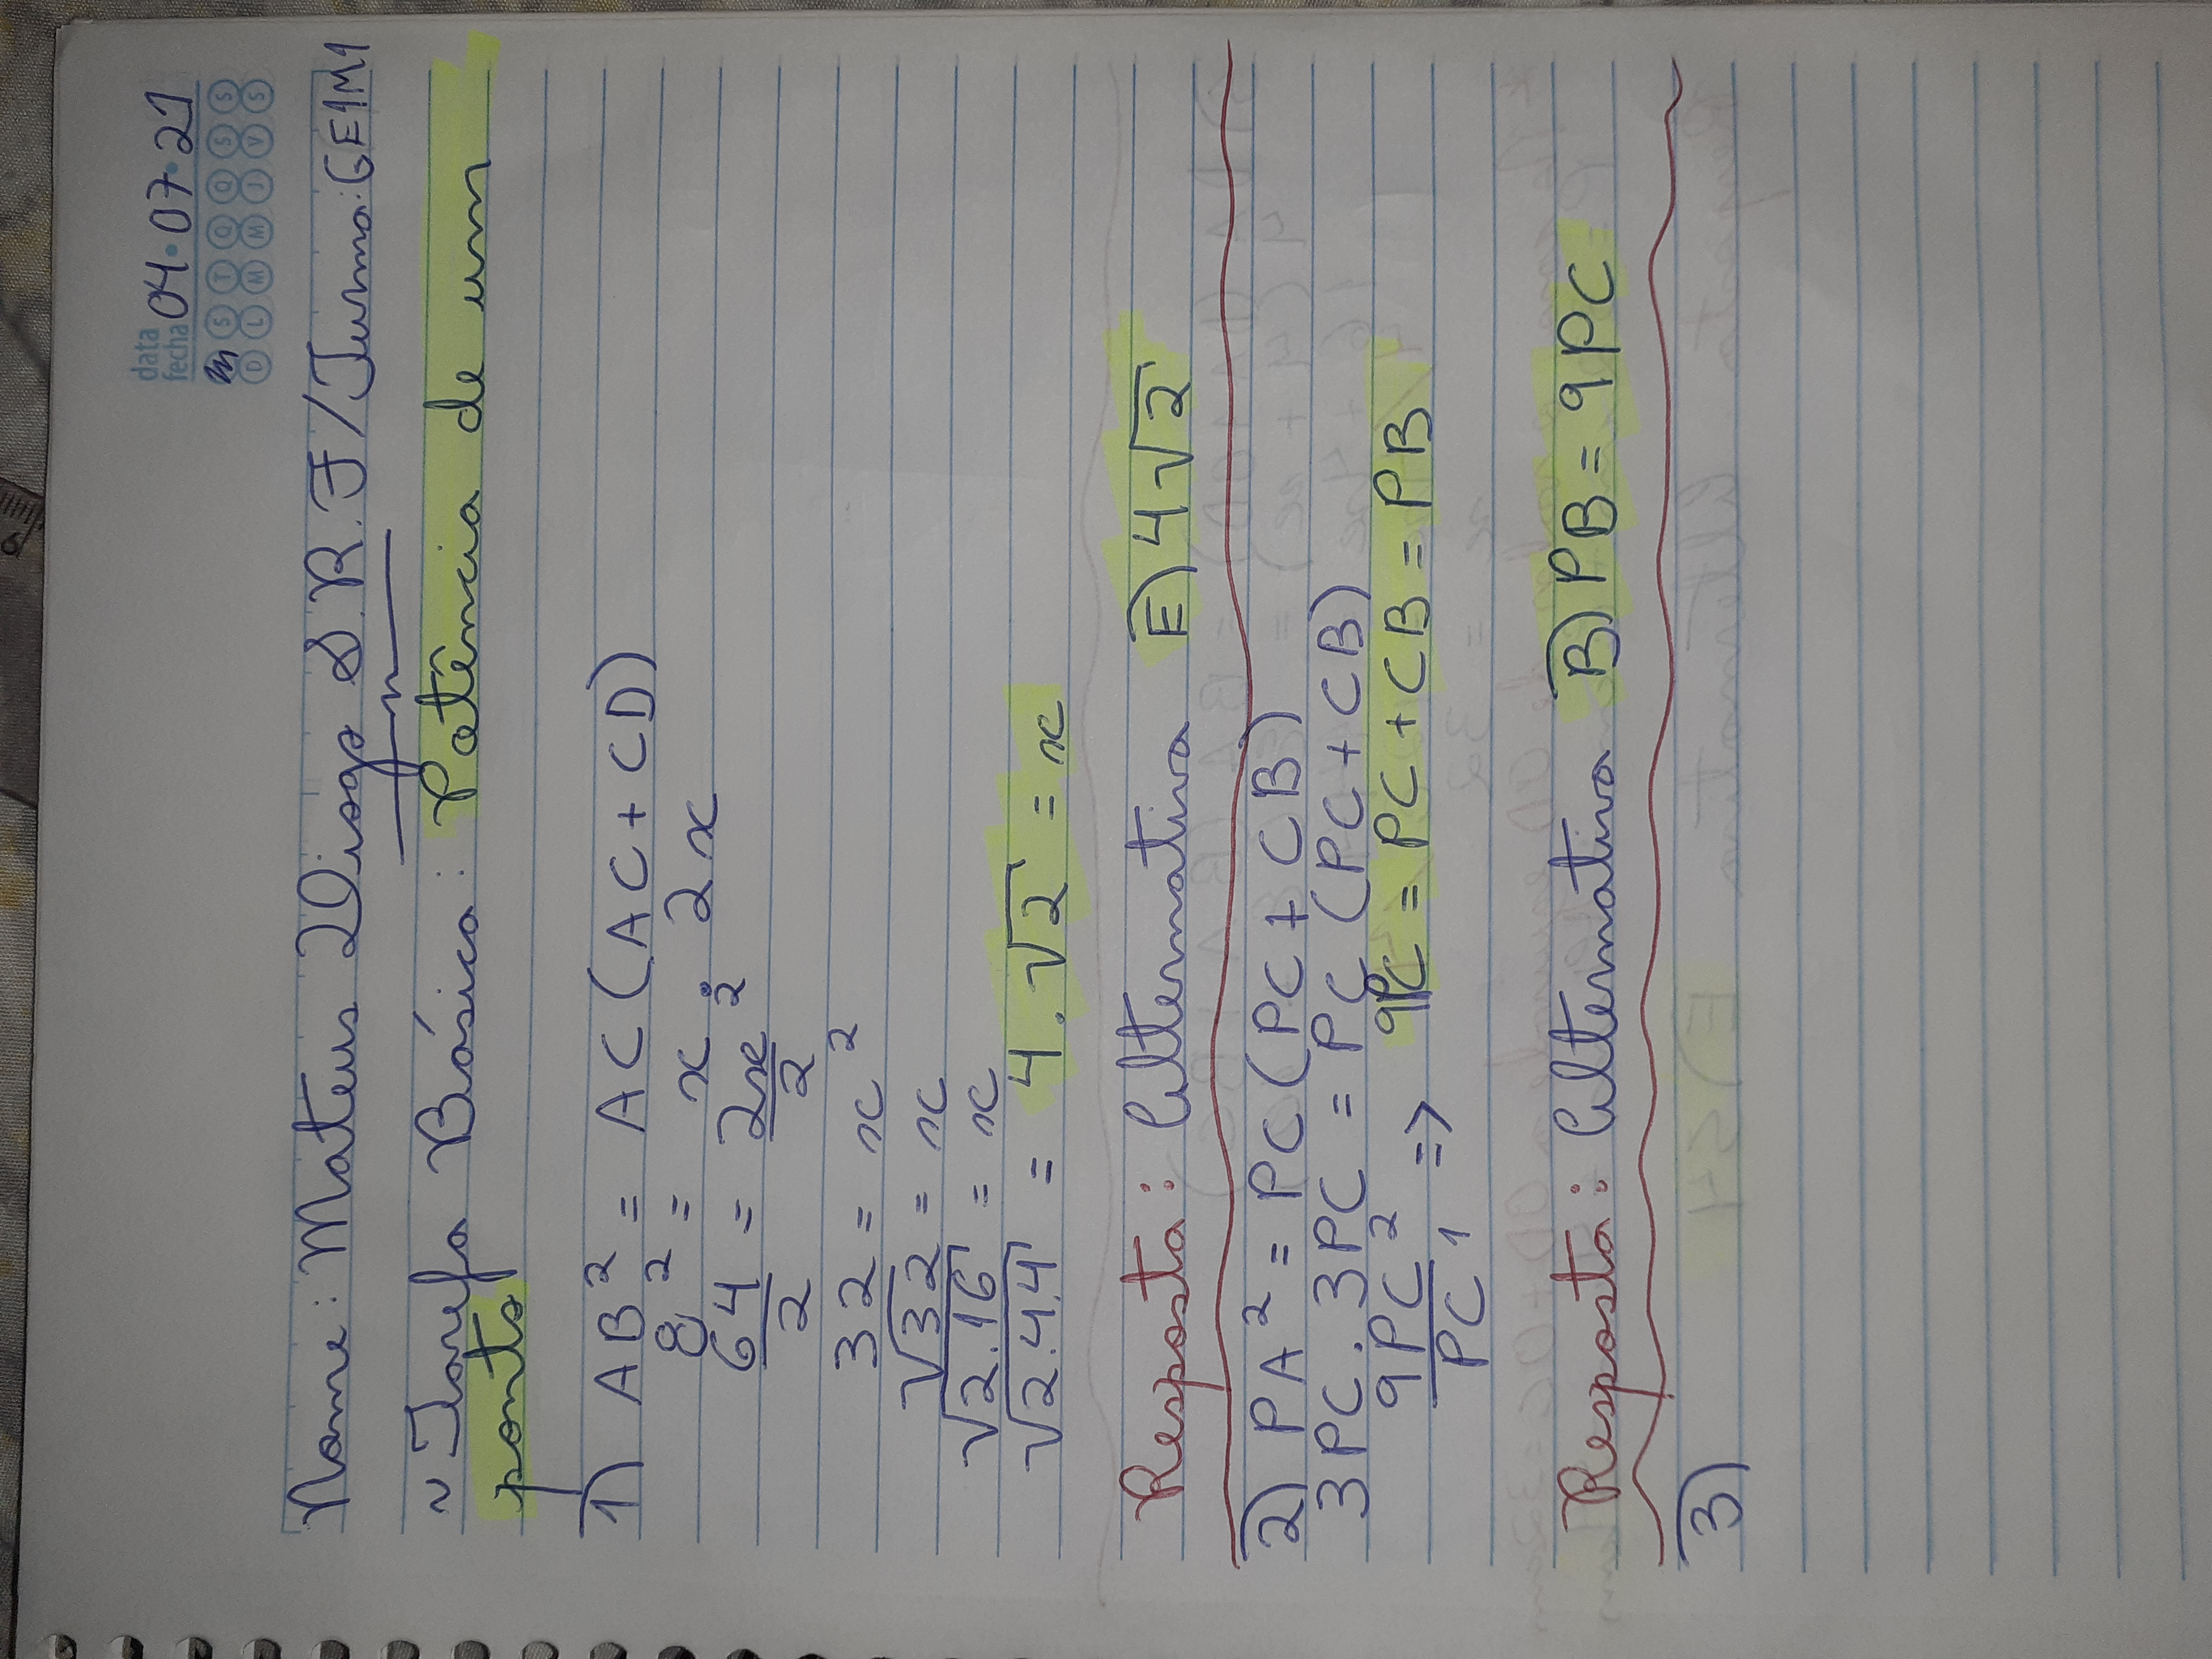 data
fecha 04·07·21
S T Q Q S S
D L M M J V S
Nome: Mateus Diogo S.R.F/Turma: GE1M1
~ Tarefa Básica: Potência de um
ponto
1) AB² = AC(AC+CD)
8² = x . 2x
64/2 = 2x²/2
32 = x²
√32 = x
√2.16 = x
√2.4.4 = 4.√2 = x
Resposta: Alternativa E) 4√2
2) PA² = PC(PC+CB)
3PC . 3PC = PC (PC+CB)
9PC²/PC¹ => 9PC = PC+CB = PB
Resposta: Alternativa B) PB = 9PC
3)